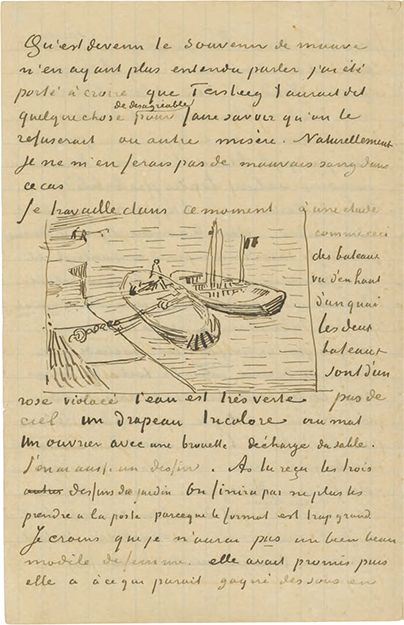 Qu'est devenu le souvenir de mauve
n'en ayant plus entendu parler j'ai été
porté à croire que Tersteeg t'aurait dit
quelque chose de désagréable pour faire savoir qu'on le
refuserait ou autre misère. Naturellement
je ne m'en ferais pas de mauvais sang dans
ce cas
Je travaille dans ce moment à une étude
comme ceci
des bateaux
vu d'en haut
d'un quai
les deux
bateaux
sont d'un
rose violacé l'eau est très verte pas de
ciel un drapeau tricolore au mat
Un ouvrier avec une brouette décharge du sable.
J'en ai aussi un dessin. As tu reçu les trois
autres dessins du jardin On finira par ne plus les
prendre a la poste parceque le format est trop grand
Je crains que je n'aurai pas un bien beau
modèle de femme. elle avait promis puis
elle a à ce qui parait gagné des sous en